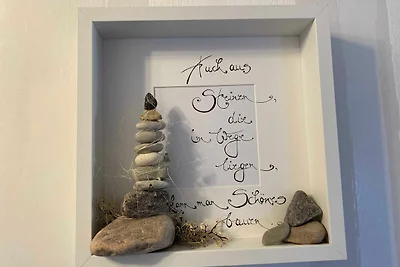 Auch aus
Steinen,
die
im Wege
liegen,
kann man Schönes
bauen